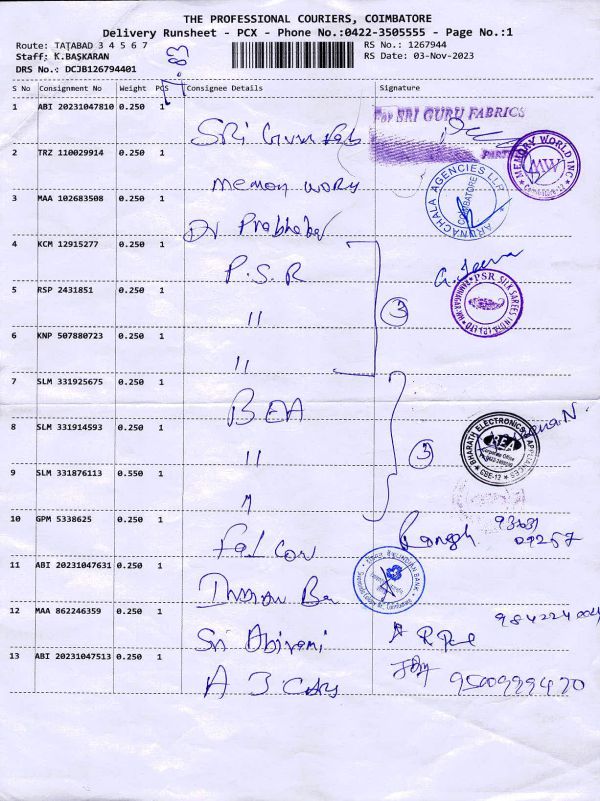 THE PROFESSIONAL COURIERS, COIMBATORE
Delivery Runsheet - PCX - Phone No.:0422-3505555 - Page No.:1
Route: TATABAD 3 4 5 6 7
RS No.: 1267944
Staff: K.BASKARAN
RS Date: 03-Nov-2023
DRS No.: DCJB126794401
S No Consignment No Weight PCS Consignee Details Signature
1 ABI 20231047810 0.250 1 Sri Guru Fab
For SRI GURU FABRICS
2 TRZ 110029914 0.250 1
MEMORY WORLD INC
MW
3 MAA 102683508 0.250 1 Dr Prabhakar
ARUNACHALA AGENCIES LLP
COIMBATORE
4 KCM 12915277 0.250 1 P.S.R
5 RSP 2431851 0.250 1 "
3
PSR SILK SAREES INDIA (P) LTD
6 KNP 507880723 0.250 1 "
7 SLM 331925675 0.250 1 BEA
8 SLM 331914593 0.250 1 "
3
BHARATH ELECTRONICS & APPLIANCES
BEA
CBE-12
9 SLM 331876113 0.550 1 "
10 GPM 5338625 0.250 1 Falcon
11 ABI 20231047631 0.250 1
12 MAA 862246359 0.250 1 Sri Abirami
13 ABI 20231047513 0.250 1
9500929470